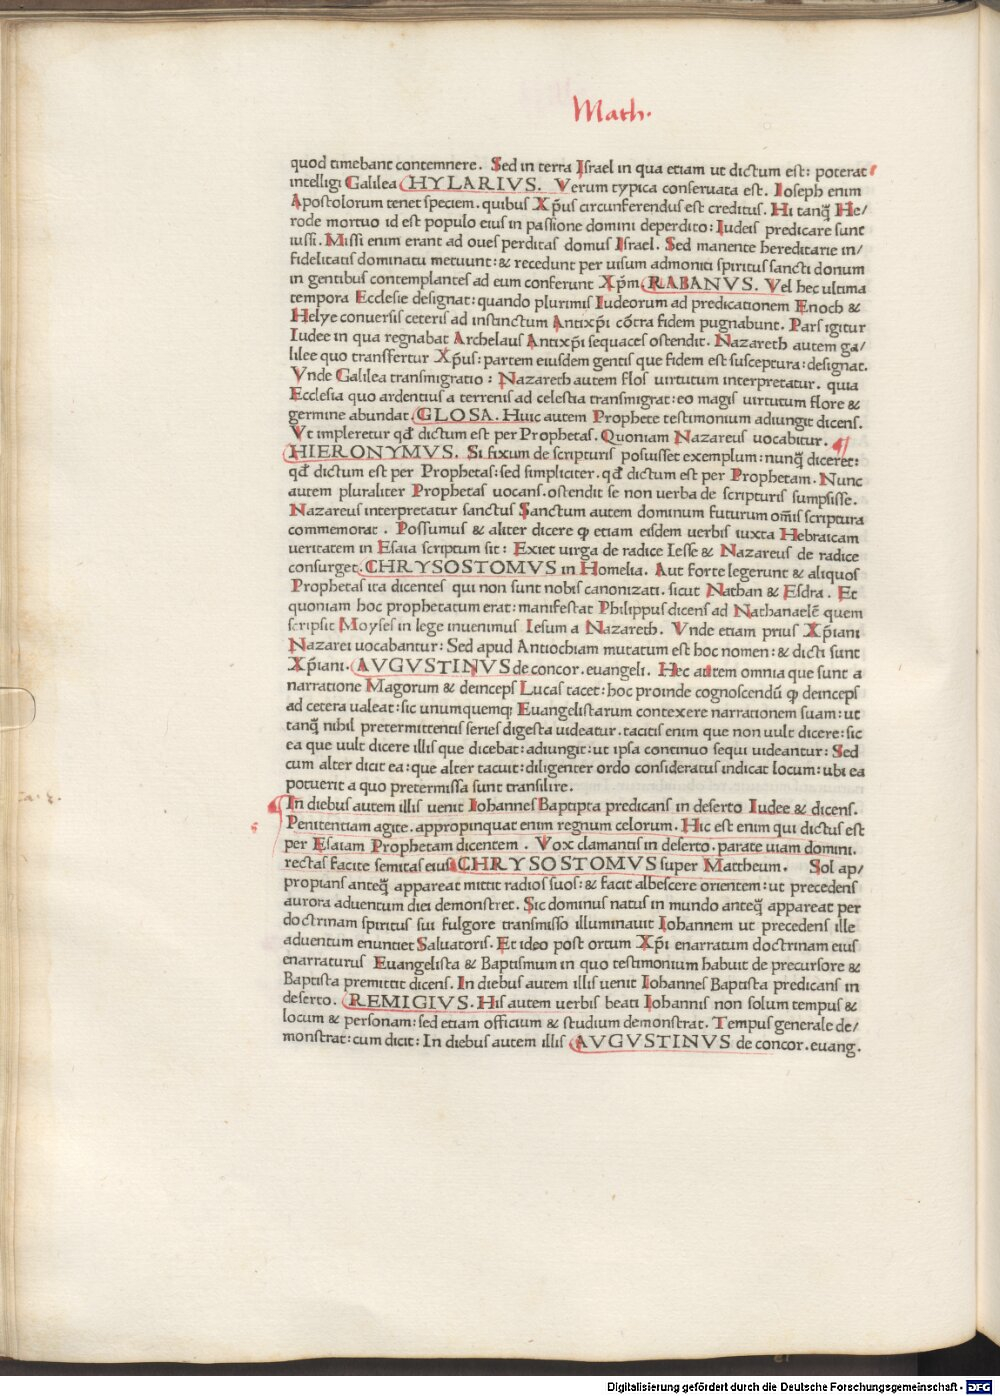 Math.
quod timebant contemnere. Sed in terra Israel in qua etiam ut dictum est: poterat
intelligi Galilea HYLARIVS. Verum typica conseruata est. Ioseph enim
Apostolorum tenet speciem. quibus Xp̄us circunferendus est creditus. Hi tanq̃ He/
rode mortuo id est populo eius in passione domini deperdito: Iudeis predicare sunt
iussi. Missi enim erant ad oues perditas domus Israel. Sed manente hereditarie in/
fidelitatis dominatu metuunt: & recedunt per uisum admoniti spiritus sancti donum
in gentibus contemplantes ad eum conferunt Xp̄m RABANVS. Vel hec ultima
tempora Ecclesie designat: quando plurimis Iudeorum ad predicationem Enoch &
Helye conuersis ceteris ad instinctum Antixp̄i cōtra fidem pugnabunt. Pars igitur
Iudee in qua regnabat Archelaus Antixp̄i sequaces ostendit. Nazareth autem ga/
lilee quo transffertur Xp̄us: partem eiusdem gentis que fidem est susceptura: designat.
Vnde Galilea transmigratio: Nazareth autem flos uirtutum interpretatur. quia
Ecclesia quo ardentius a terrenis ad celestia transmigrat: eo magis uirtutum flore &
germine abundat. GLOSA. Huic autem Prophete testimonium adiungit dicens.
Vt impleretur qđ dictum est per Prophetas. Quoniam Nazareus uocabitur.
HIERONYMVS. Si fixum de scripturis posuisset exemplum: nunq̃ diceret:
qđ dictum est per Prophetas: sed simpliciter. qđ dictum est per Prophetam. Nunc
autem pluraliter Prophetas uocans. ostendit se non uerba de scripturis sumpsisse.
Nazareus interpretatur sanctus Sanctum autem dominum futurum om̄is scriptura
commemorat. Possumus & aliter dicere ꝙ etiam eisdem uerbis iuxta Hebraicam
ueritatem in Esaia scriptum sit: Exiet uirga de radice Iesse & Nazareus de radice
consurget. CHRYSOSTOMVS in Homelia. Aut forte legerunt & aliquos
Prophetas ita dicentes qui non sunt nobis canonizati. sicut Nathan & Esdra. Et
quoniam hoc prophetatum erat: manifestat Philippus dicens ad Nathanaelē quem
scripsit Moyses in lege inuenimus Iesum a Nazareth. Vnde etiam prius Xp̄iani
Nazarei uocabantur: Sed apud Antiochiam mutatum est hoc nomen: & dicti sunt
Xp̄iani. AVGVSTINVS de concor. euangeli. Hec autem omnia que sunt a
narratione Magorum & deinceps Lucas tacet: hoc proinde cognoscendū ꝙ deinceps
ad cetera ualeat: sic unumquemqꝫ Euangelistarum contexere narrationem suam: ut
tanq̃ nihil pretermittentis series digesta uideatur. tacitis enim que non uult dicere: sic
ea que uult dicere illis que dicebat: adiungit: ut ipsa continuo sequi uideantur: Sed
cum alter dicit ea: que alter tacuit: diligenter ordo consideratus indicat locum: ubi ea
potuerit a quo pretermissa sunt transilire.
In diebus autem illis uenit Iohannes Baptipta predicans in deserto Iudee & dicens.
Penitentiam agite. appropinquat enim regnum celorum. Hic est enim qui dictus est
per Esaiam Prophetam dicentem. Vox clamantis in deserto. parate uiam domini.
rectas facite semitas eius CHRYSOSTOMVS super Mattheum. Sol ap/
propians anteq̃ appareat mittit radios suos: & facit albescere orientem: ut precedens
aurora aduentum diei demonstret. Sic dominus natus in mundo anteq̃ appareat per
doctrinam spiritus sui fulgore transmisso illuminauit Iohannem ut precedens ille
aduentum enuntiet Saluatoris. Et ideo post ortum Xp̄i enarratum doctrinam eius
enarraturus Euangelista & Baptismum in quo testimonium habuit de precursore &
Baptista premittit dicens. In diebus autem illis uenit Iohannes Baptista predicans in
deserto. REMIGIVS. His autem uerbis beati Iohannis non solum tempus &
locum & personam: sed etiam officium & studium demonstrat. Tempus generale de/
monstrat: cum dicit: In diebus autem illis AVGVSTINVS de concor. euang.
Digitalisierung gefördert durch die Deutsche Forschungsgemeinschaft - DFG